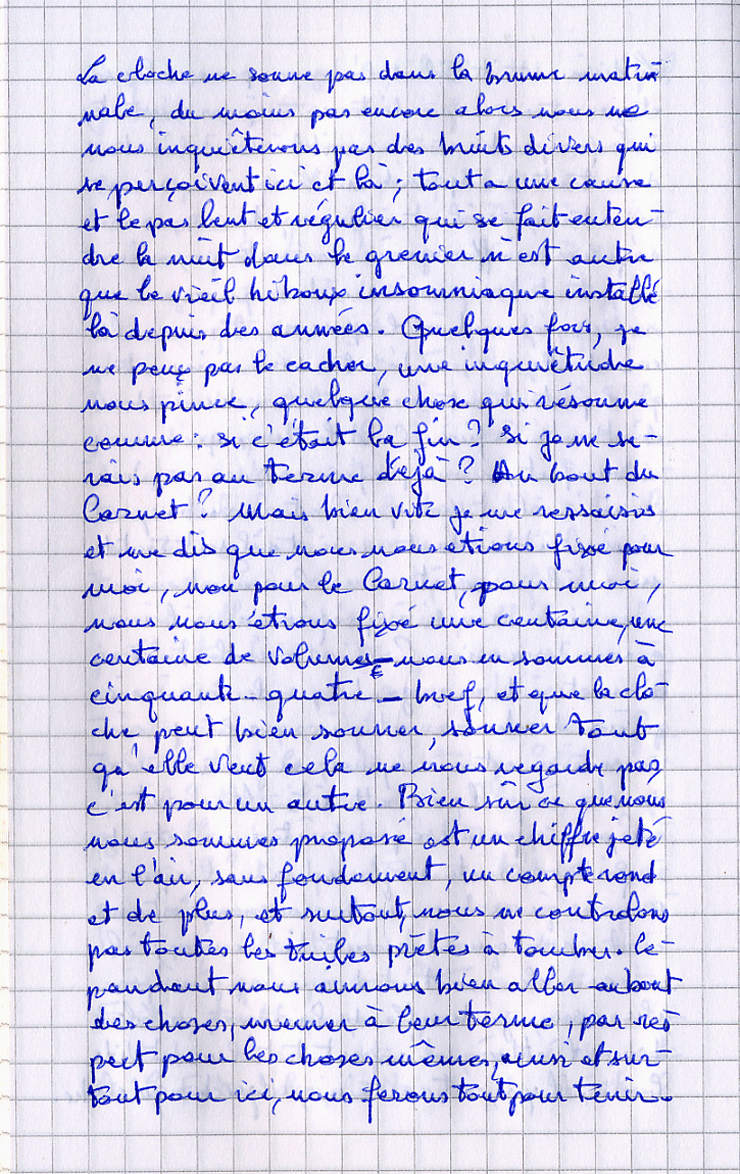 La cloche ne sonne pas dans la brume mati-
nale, du moins pas encore alors nous ne
nous inquièterons pas des bruits divers qui
se perçoivent ici et là ; tout a une cause
et le pas lent et régulier qui se fait enten-
dre la nuit dans le grenier n'est autre
que le vieil hiboux insomniaque installé
là depuis des années. Quelques fois, je
ne peux pas le cacher, une inquiétude
nous pince, quelque chose qui résonne
comme : si c'était la fin ? Si je ne se-
rais pas au terme déjà ? Au bout du
Carnet ? Mais bien vite je me ressaisis
et me dis que nous nous étions fixé pour
moi, non pour le Carnet, pour moi,
nous nous étions fixé une centaine, une
centaine de volumes - nous en sommes à
cinquante-quatre - bref, et que la clo-
che peut bien sonner, sonner tant
qu'elle veut cela ne nous regarde pas,
c'est pour un autre. Bien sûr ce que nous
nous sommes proposé est un chiffre jeté
en l'air, sans fondement, un compte rond
et de plus, et surtout, nous ne contrôlons
pas toutes les tuiles prêtes à tomber. Ce-
pendant nous aimons bien aller au bout
des choses, mener à leur terme, par res
pect pour les choses mêmes, aussi et sur-
tout pour ici, nous ferons tout pour tenir.